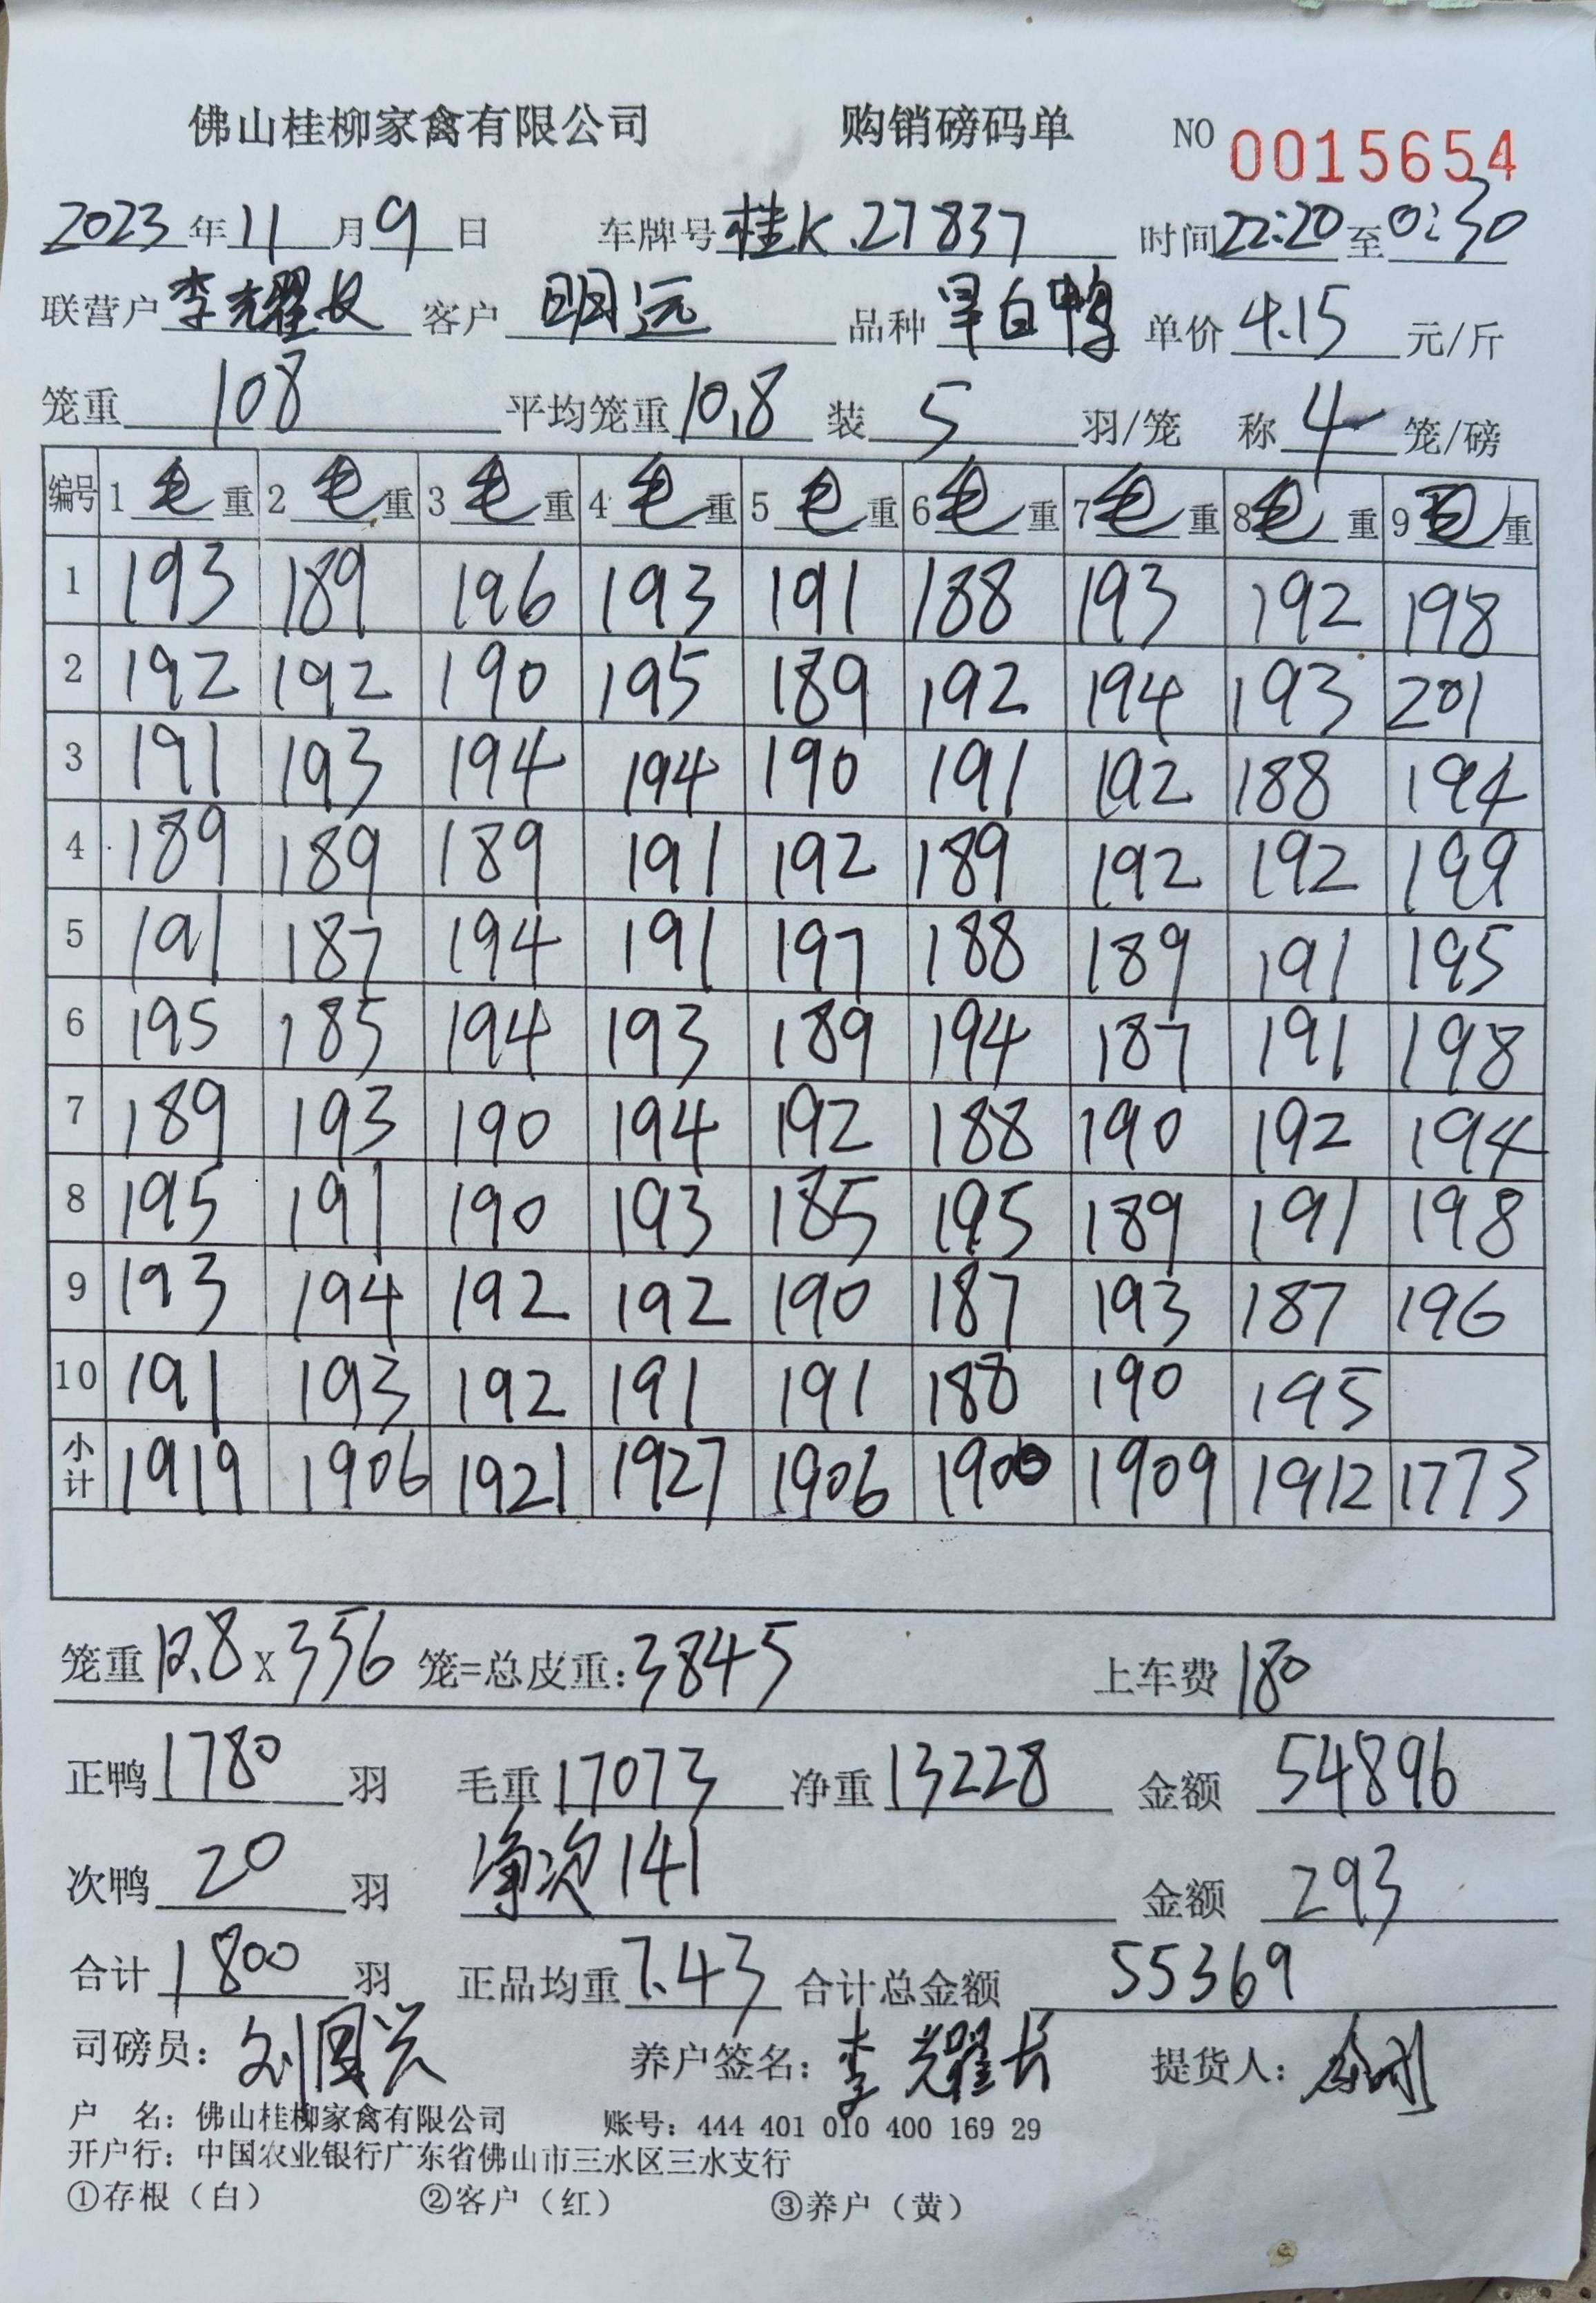 佛山桂柳家禽有限公司 购销磅码单 NO 0015654
2023年11月9日 车牌号桂K.27837 时间22:20至0:30
联营户李耀长 客户明远 品种旱白鸭 单价4.15元/斤
笼重108 平均笼重10.8 装5羽/笼 称4笼/磅
编号 1毛重 2毛重 3毛重 4毛重 5毛重 6毛重 7毛重 8毛重 9毛重
1 193 189 196 193 191 188 193 192 198
2 192 192 190 195 189 192 194 193 201
3 191 193 194 194 190 191 192 188 194
4 189 189 189 191 192 189 192 192 199
5 191 187 194 191 197 188 189 191 195
6 195 185 194 193 189 194 187 191 198
7 189 193 190 194 192 188 190 192 194
8 195 191 190 193 185 195 189 191 198
9 193 194 192 192 190 187 193 187 196
10 191 193 192 191 191 188 190 195
小计 1919 1906 1921 1927 1906 1900 1909 1912 1773
笼重10.8X356笼=总皮重:3845 上车费180
正鸭1780羽 毛重17073 净重13228 金额54896
次鸭20羽 净次141 金额293
合计1800羽 正品均重7.43 合计总金额55369
司磅员:刘国兴 养户签名:李耀长 提货人:
户 名:佛山桂柳家禽有限公司 账号:444 401 010 400 169 29
开户行:中国农业银行广东省佛山市三水区三水支行
①存根（白） ②客户（红） ③养户（黄）